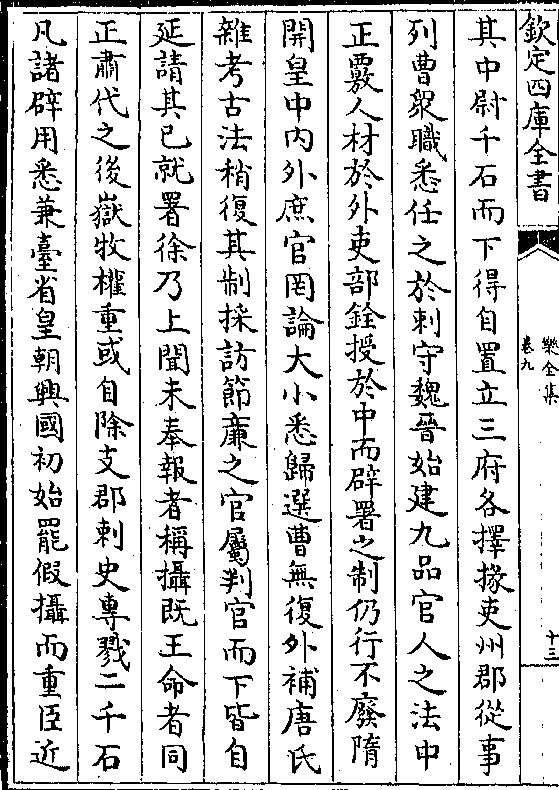 欽定四庫全書
樂全集
卷九
十三
其中尉千石而下得自置立三府各擇掾吏州郡從事
列曹衆職悉任之於刺守魏晉始建九品官人之法中
正覈人材於外吏部銓授於中而辟署之制仍行不廢隋
開皇中内外庶官罔論大小悉歸選曹無復外補唐氏
雜考古法稍復其制採訪節廉之官屬判官而下皆自
延請其已就署徐乃上聞未奉報者稱攝既王命者同
正肅代之後嶽牧權重或自除支郡刺史專戮二千石
凡諸辟用悉兼臺省皇朝興國初始罷假攝而重臣近